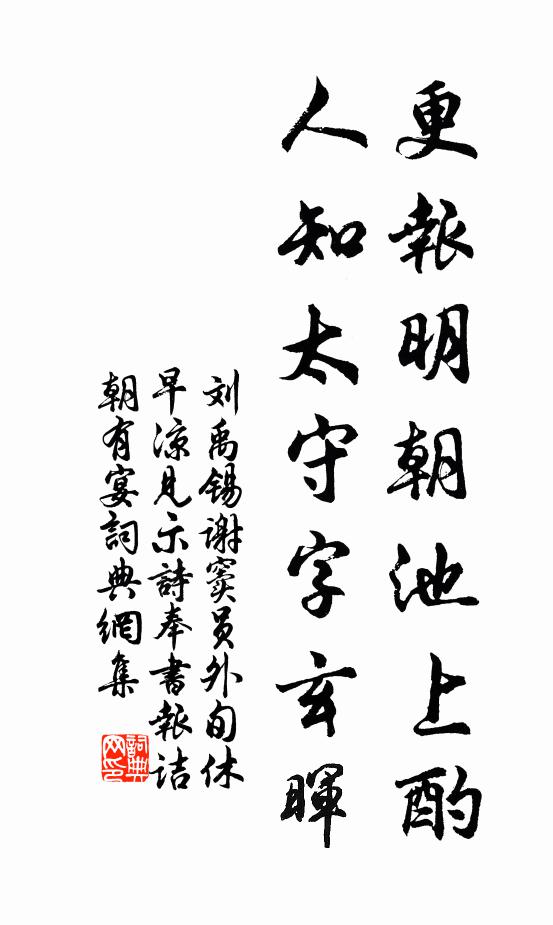 更報明朝池上酌
人知太守字玄暉
刘禹锡谢窦员外旬休
早凉見示詩奉書報诘
朝有宴詞典網集
詞典
网印